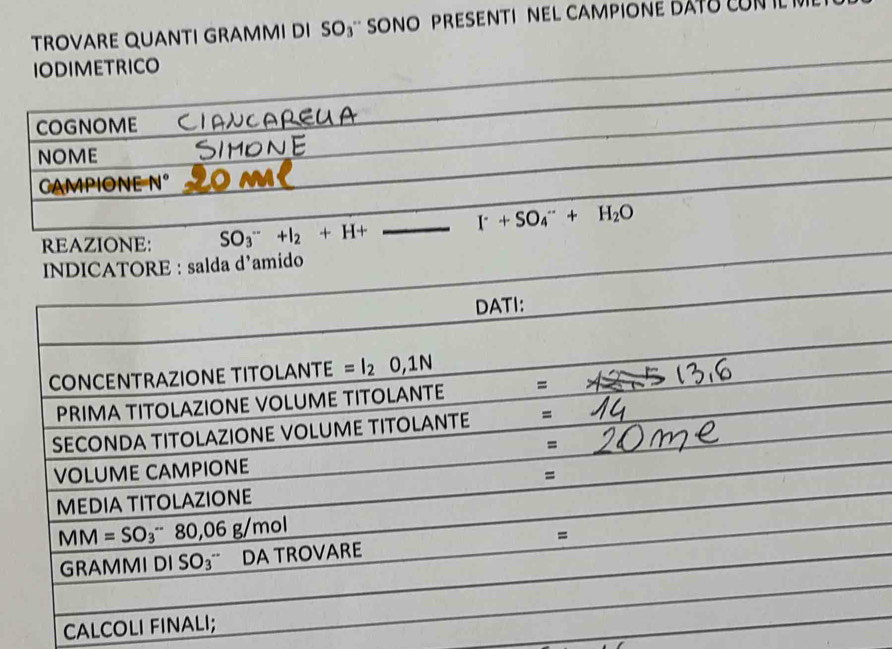 TROVARE QUANTI GRAMMI DI SO₃⁻⁻ SONO PRESENTI NEL CAMPIONE DATO CON IL
IODIMETRICO
COGNOME CIANCARELLA
NOME SIMONE
CAMPIONE N° 20 ml
REAZIONE: SO₃⁻⁻ +I₂ + H+ ——— I⁻ + SO₄⁻⁻ + H₂O
INDICATORE : salda d'amido
DATI:
CONCENTRAZIONE TITOLANTE = I₂ 0,1N
PRIMA TITOLAZIONE VOLUME TITOLANTE = 13,6
SECONDA TITOLAZIONE VOLUME TITOLANTE = 14
VOLUME CAMPIONE = 20 ml
MEDIA TITOLAZIONE =
MM = SO₃⁻⁻ 80,06 g/mol
GRAMMI DI SO₃⁻⁻ DA TROVARE =
CALCOLI FINALI;